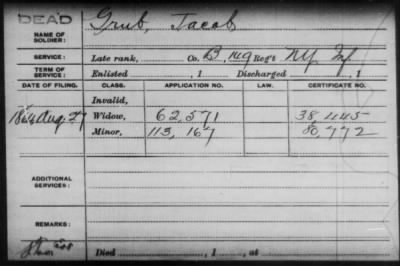 DEAD
NAME OF SOLDIER: Grub, Jacob
SERVICE: Late rank, Co. B, 149 Reg't NY Inf
TERM OF SERVICE: Enlisted , 1 Discharged , 1
DATE OF FILING. CLASS. APPLICATION NO. LAW. CERTIFICATE NO.
Invalid,
1864 Aug. 27 Widow, 62,571 38,445
Minor, 113,167 80,772
ADDITIONAL SERVICES:
REMARKS:
Died , 1 , at